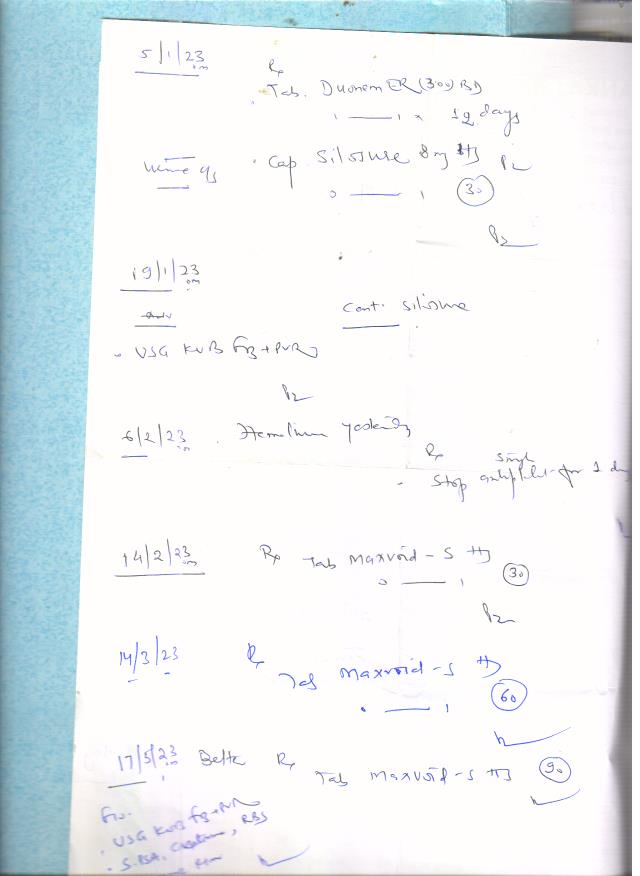 5/1/23
Rx
Tab. Duonem ER (300) BD
1 —— 1 x 12 days
Urine c/s . Cap Silosure 8mg HS
0 —— 1 (30)
19/1/23
Cont. Silosure
. USG KUB +PVR
6/2/23 . yesterday
Rx Single
. Stop antiplatelet for 1 day
14/2/23 Rx Tab Maxvoid-S HS
0 —— 1 (30)
14/3/23 Rx
Tab Maxvoid-S HS
0 —— 1 (60)
17/5/23 Better Rx Tab Maxvoid-S HS (90)
. USG KUB +PVR
. S.PSA, Creatinine, RBS